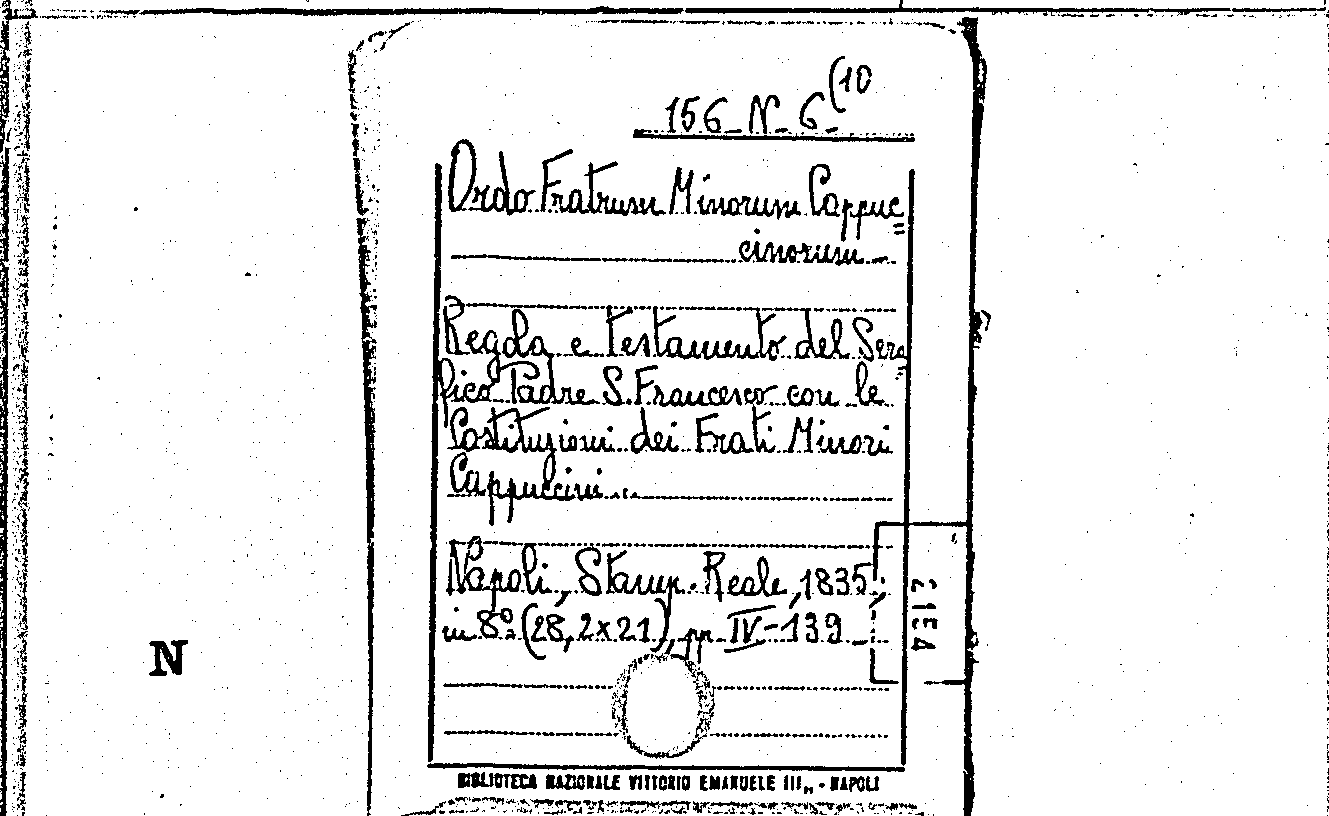 156 N. 6 (10
Ordo Fratrum Minorum Cappuc=
cinorum
Regola e Testamento del Sera=
fico Padre S. Francesco con le
Costituzioni dei Frati Minori
Cappuccini...
Napoli, Stamp. Reale, 1835;
in 8º (28,2x21), pp. IV-139
N
BIBLIOTECA NAZIONALE VITTORIO EMANUELE III,, - NAPOLI